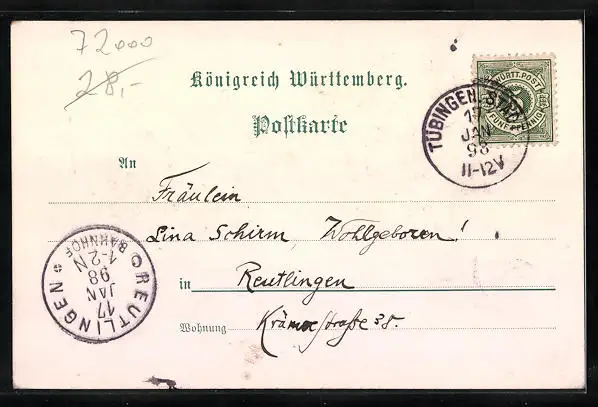 72000
28,-
Königreich Württemberg.
Postkarte
WÜRTT. POST
FÜNF PFENNIG
TÜBINGEN. STADT
17
JAN
98
11-12V
An
Fräulein
Lina Schirm, Wohlgeboren!
in Reutlingen
Wohnung Krämerstraße 38.
REUTLINGEN
BAHNHOF
1-2N
98
JAN
17